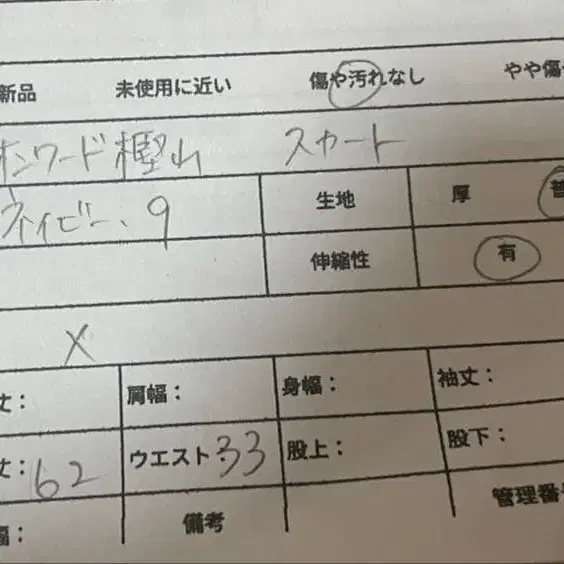 新品 未使用に近い 傷や汚れなし やや傷
オンワード樫山 スカート
ネイビー、9 生地 厚 普
伸縮性 有
X
丈: 肩幅: 身幅: 袖丈:
丈:62 ウエスト:33 股上: 股下:
幅: 備考 管理番号